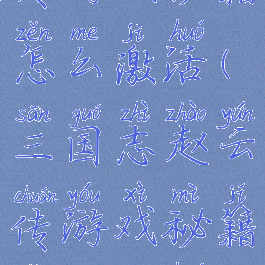 zěn me jī huó
怎么激活(
sān guó zhì zhào yún
三国志赵云
chuán yóu xì mì jí
传游戏秘籍